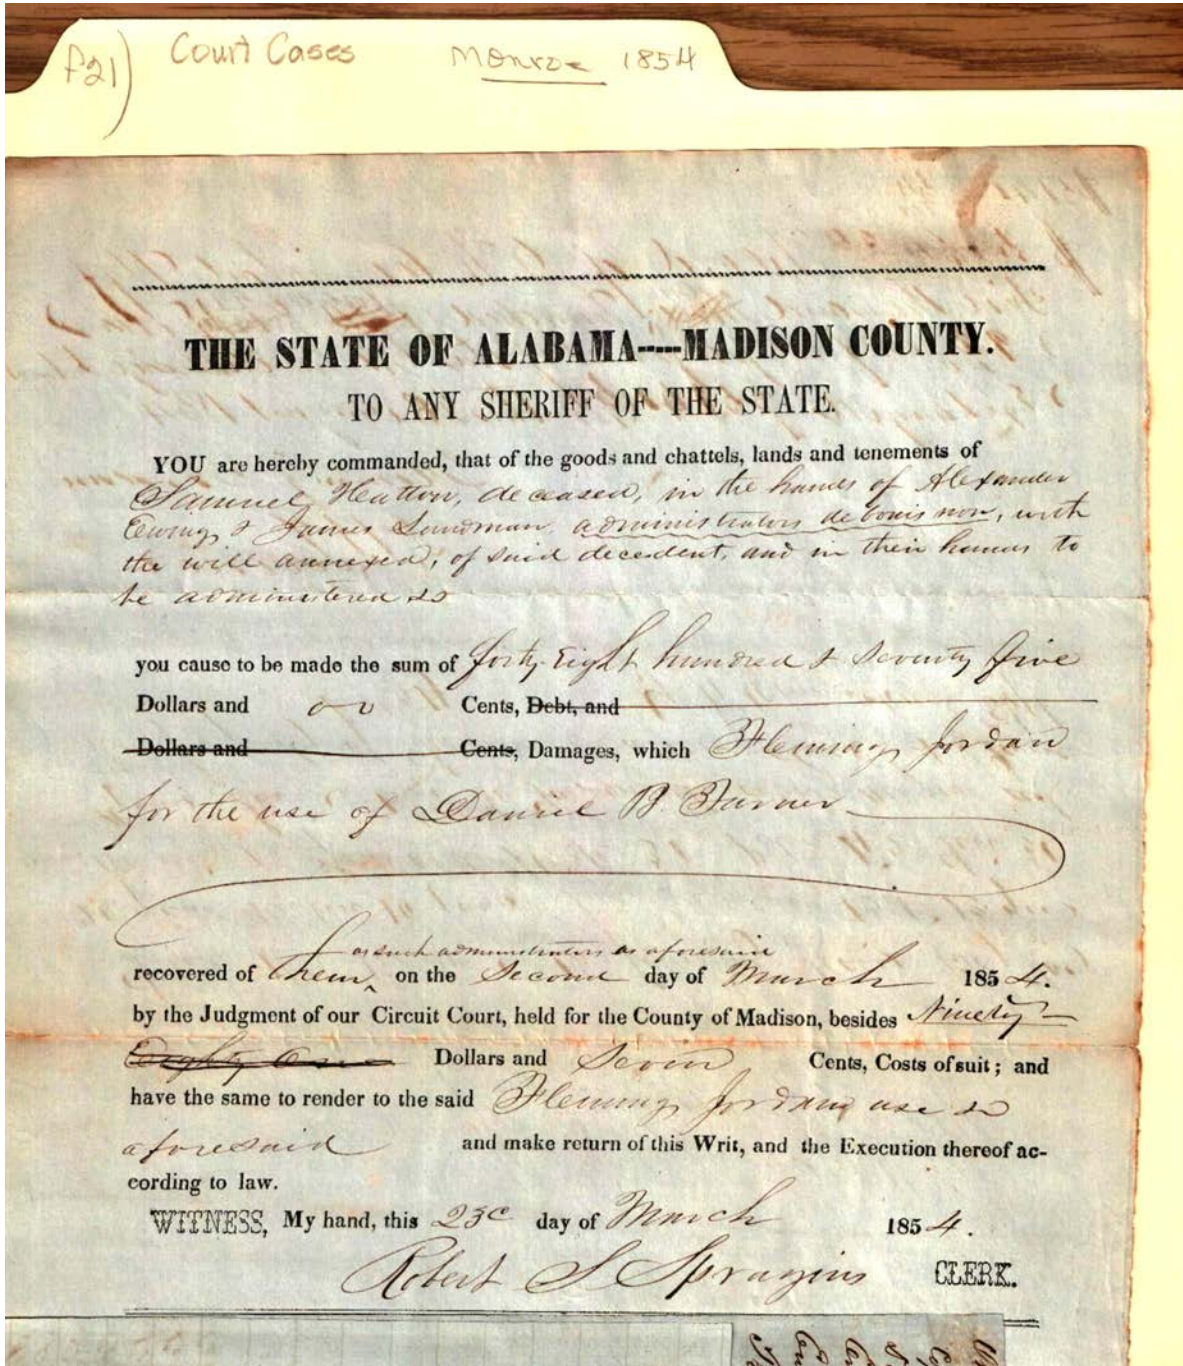 P21) Court Cases Monroe 1854
THE STATE OF ALABAMA----MADISON COUNTY.
TO ANY SHERIFF OF THE STATE.
YOU are hereby commanded, that of the goods and chattels, lands and tenements of
Samuel Hatton, deceased, in the hands of Alexander
Ewing & James Landman, administrators de bonis non, with
the will annexed, of said decedent, and in their hands to
be administered
you cause to be made the sum of forty Eight hundred & seventy five
Dollars and 00 Cents, Debt, and
Dollars and Cents, Damages, which Fleming Jordan
for the use of Daniel B. Turner
as such administrators as aforesaid
recovered of them, on the Second day of March 1854.
by the Judgment of our Circuit Court, held for the County of Madison, besides Ninety
Eighty One Dollars and Seven Cents, Costs of suit; and
have the same to render to the said Fleming Jordan, use
aforesaid and make return of this Writ, and the Execution thereof ac-
cording to law.
WITNESS, My hand, this 23d day of March 1854.
Robert S Spragins CLERK.